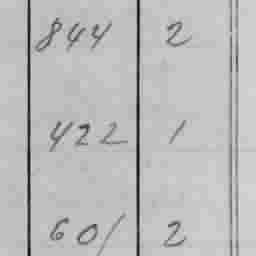 844 2
422 1
601 2